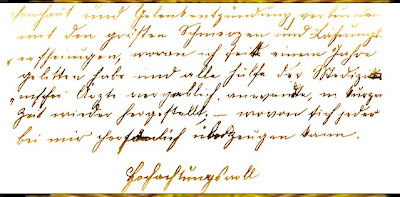 senhaut und Gelenkentzündung, verbunden
mit den größten Schmerzen und Lähmungs-
erscheinungen, woran ich seit einem Jahre
gelitten habe und alle Hülfe der Medizi-
nischer Ärzte vergeblich anwandte, in kurzer
Zeit wieder hergestellt, – wovon sich jeder
bei mir persönlich überzeugen kann.
Hochachtungsvoll